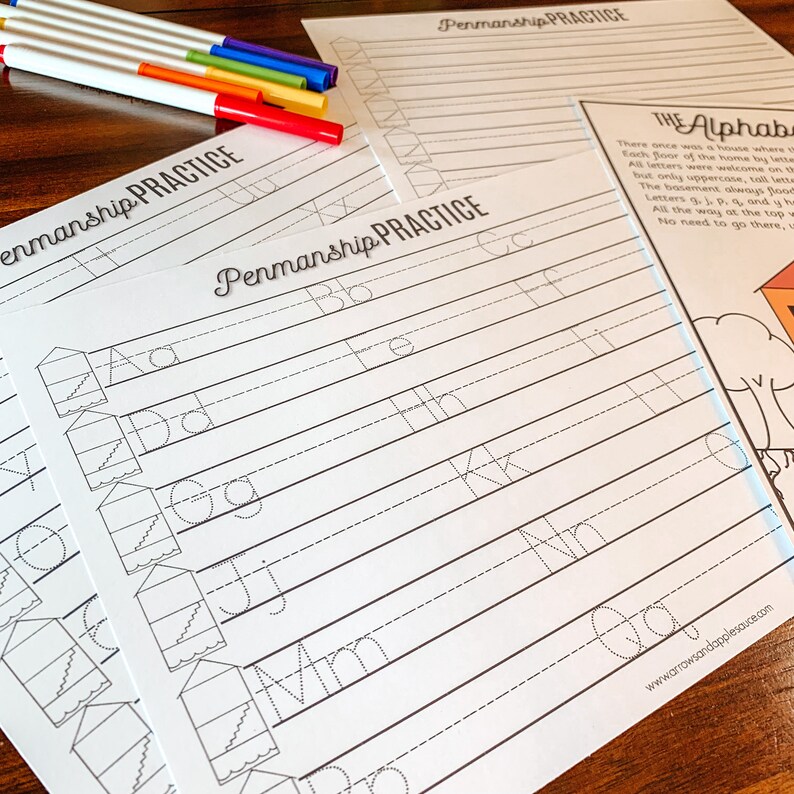 Penmanship PRACTICE
THE Alphabe
There once was a house where th
Each floor of the home by lette
All letters were welcome on th
but only uppercase, tall lette
The basement always flood
Letters g, j, p, q, and y ha
All the way at the top w
No need to go there, u
Penmanship PRACTICE
Uu
Xx
Penmanship PRACTICE
Aa Bb Cc
Dd Ee Ff
Gg Hh Ii
Jj Kk Ll
Mm Nn O
Pp Qq
www.arrowsandapplesauce.com